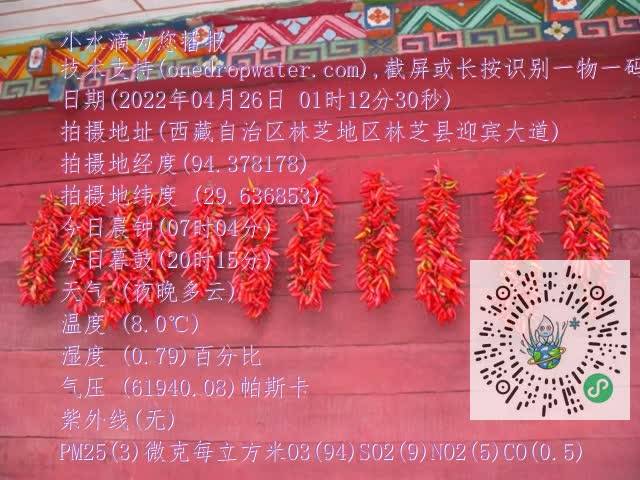 小水滴为您播报
技术支持(onedropwater.com),截屏或长按识别一物一码
日期(2022年04月26日 01时12分30秒)
拍摄地址(西藏自治区林芝地区林芝县迎宾大道)
拍摄地经度(94.378178)
拍摄地纬度 (29.636853)
今日晨钟(07时04分)
今日暮鼓(20时15分)
天气 (夜晚多云)
温度 (8.0℃)
湿度 (0.79)百分比
气压 (61940.08)帕斯卡
紫外线(无)
PM25(3)微克每立方米O3(94)SO2(9)NO2(5)CO(0.5)